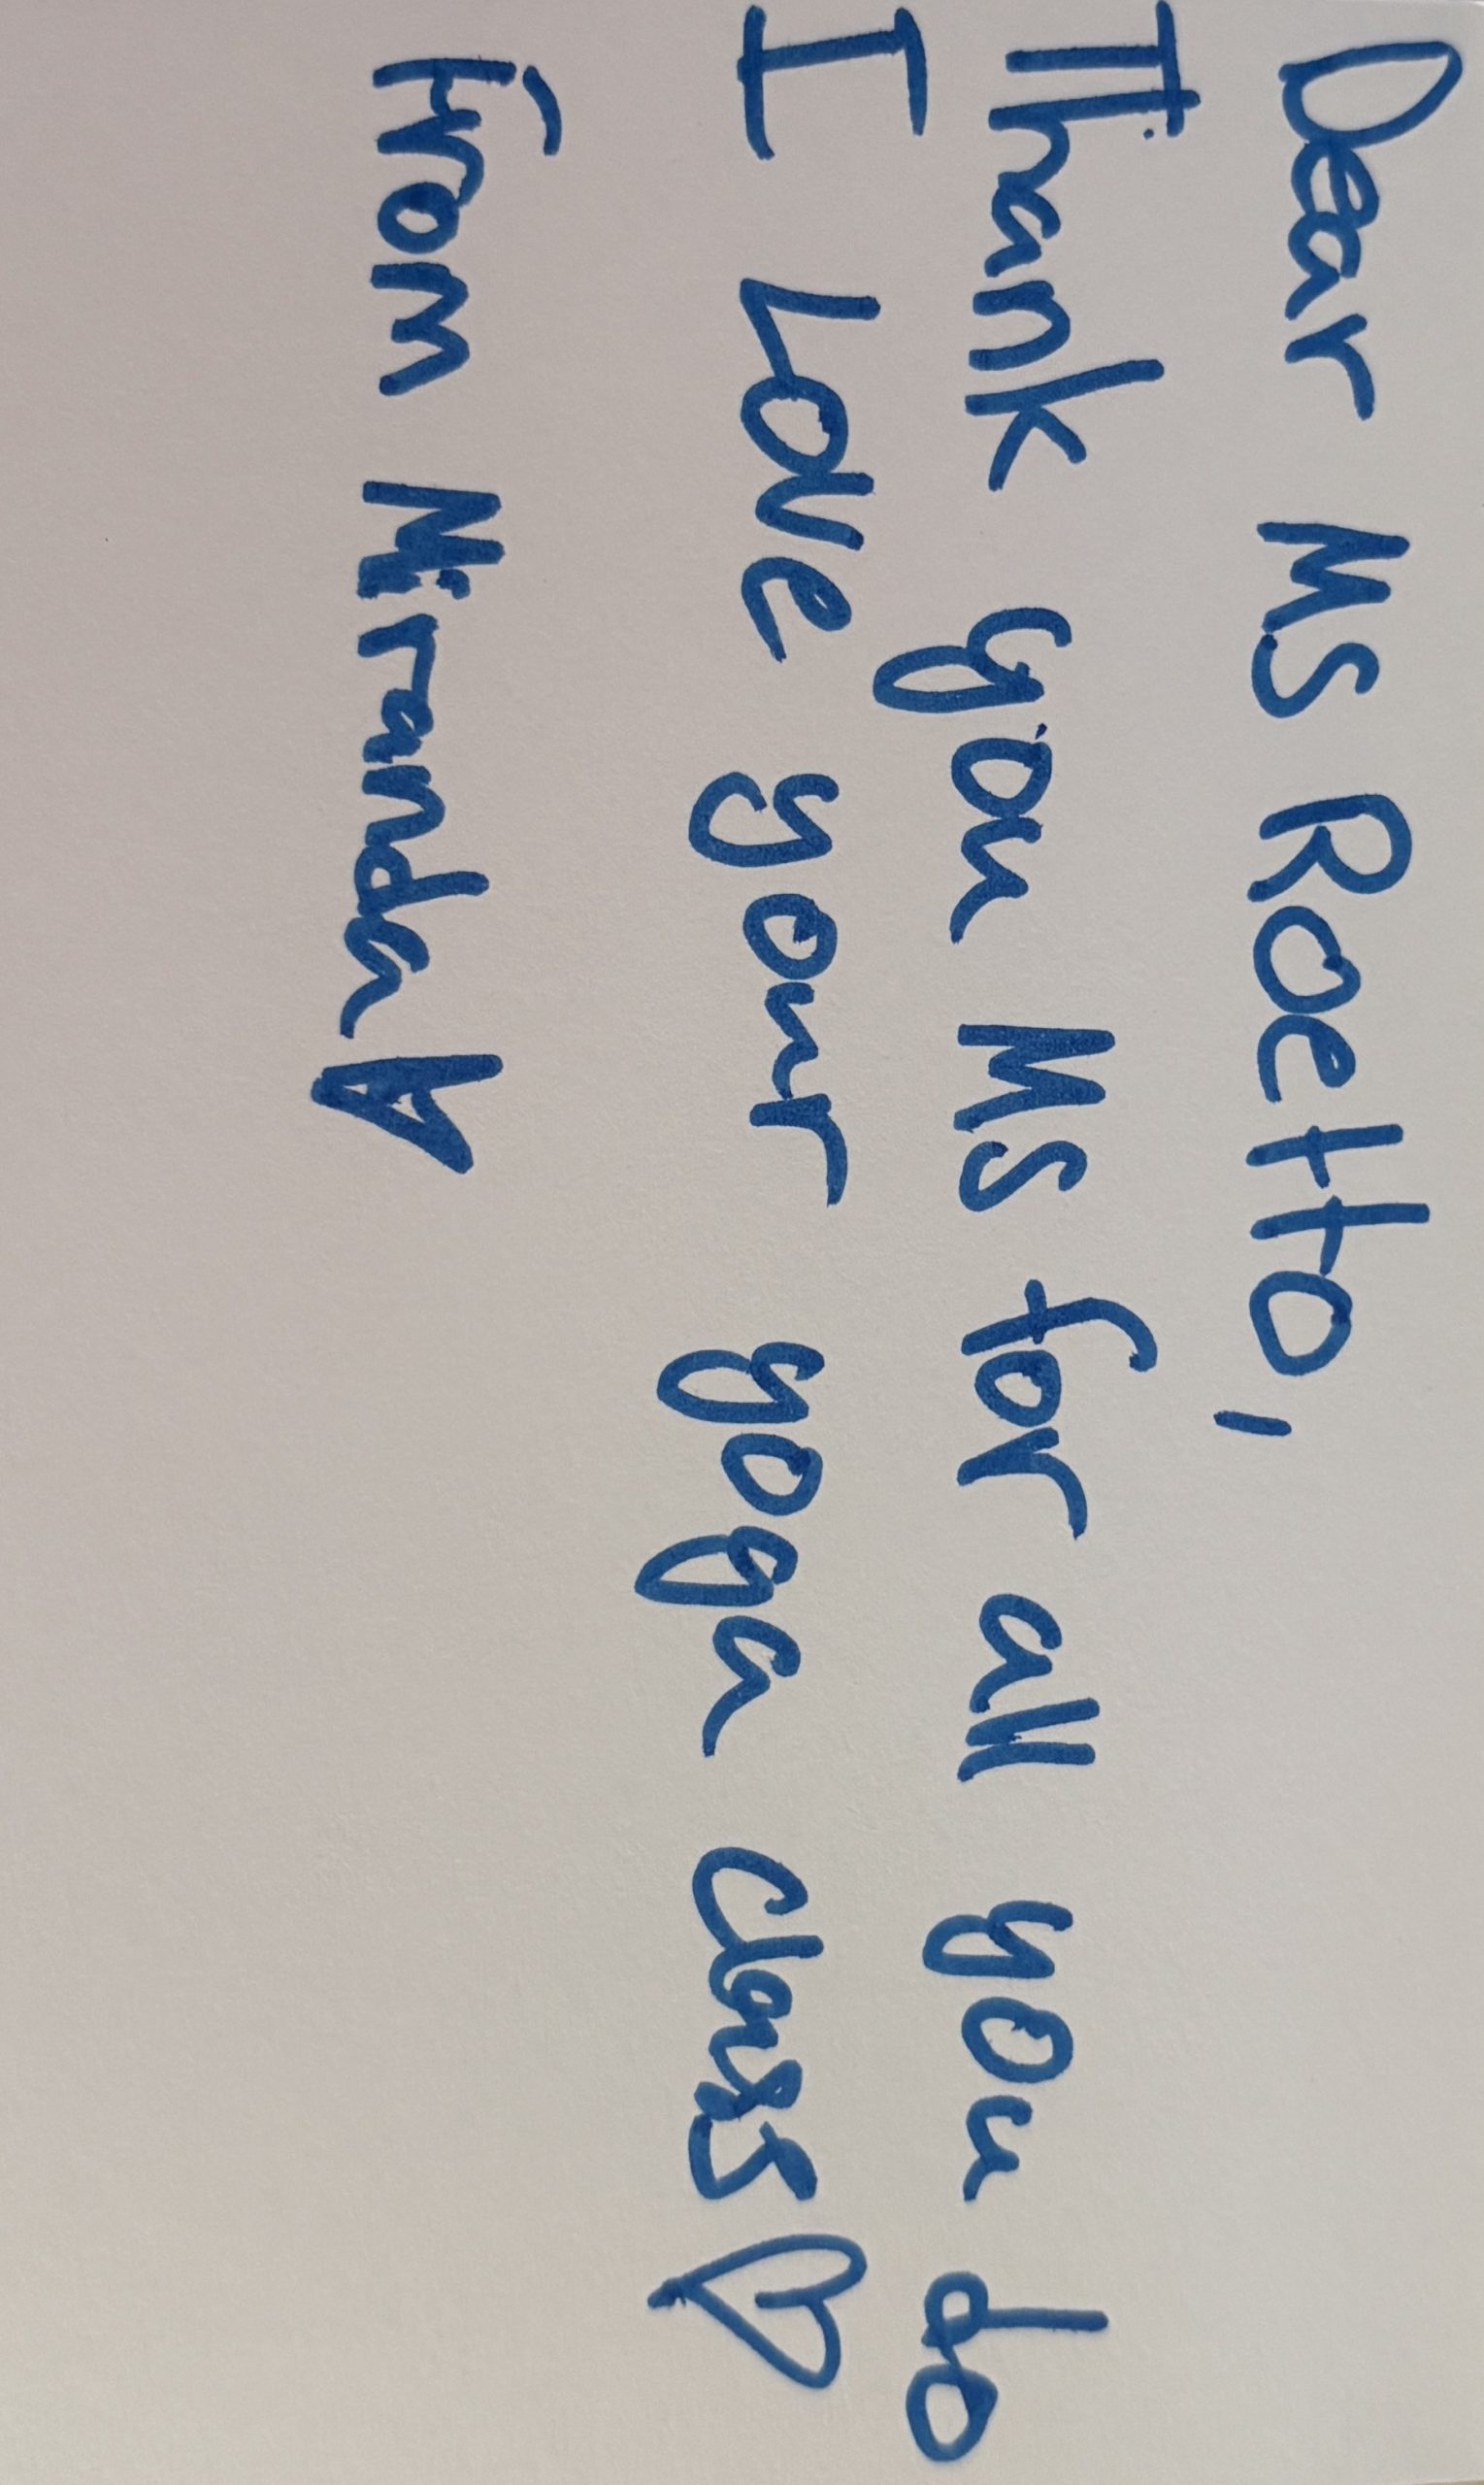 Dear MS Roetto,
Thank you MS for all you do
I Love your yoga class♡
From Miranda A